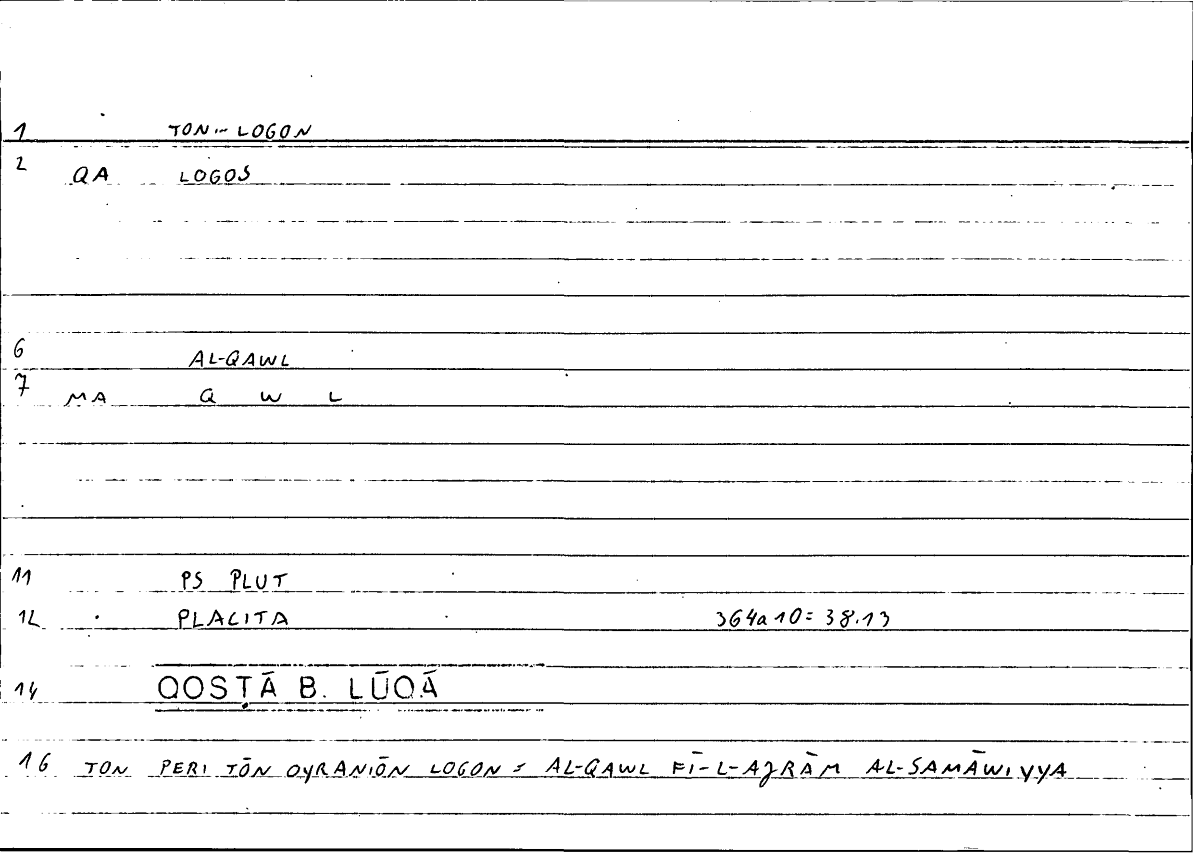 1 TON-- LOGON
2 QA LOGOS
6 AL-QAWL
7 MA Q W L
11 PS PLUT
12 PLACITA 364a10= 38.13
14 QOSṬĀ B. LŪQĀ
16 TON PERI TŌN OYRANIŌN LOGON = AL-QAWL FĪ-L-AJRĀM AL-SAMĀWIYYA